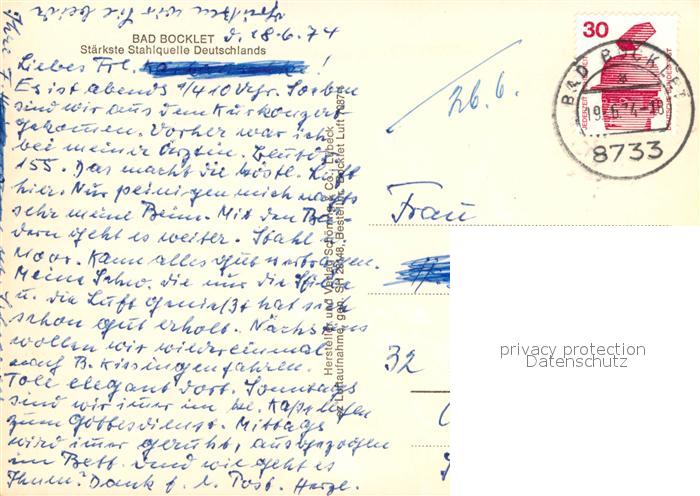 grüßen wir Sie beide
Ihre
BAD BOCKLET
Stärkste Stahlquelle Deutschlands
d. 18.6.74
Liebes Frl. !
Es ist abends 1/4 10 Uhr. Soeben
sind wir aus dem Kurkonzert
gekommen. Vorher war ich
bei meiner Ärztin. Blutdr.
155. Das macht die köstl. Luft
hier. Nur peinigen mich nachts
sehr meine Beine. Mit den Bä-
dern geht es weiter. Stahl u.
Moor. Kann alles gut vertragen.
Meine Schw. die nur die Stille
u. die Luft genießt hat sich
schon gut erholt. Nächstens
wollen wir wiedereinmal
nach B. Kissingen fahren.
Toll elegant dort. Sonntags
sind wir imer im kl. Kapellchen
zum Gottesdienst. Mittags
wird imer geruht, ausgezogen
im Bett. Und wie geht es
Ihnen? Dank f. l. Post. Herzl.
Hersteller und Verlag Schöning & Co., Lübeck
Luftaufnahme, gen. SH 28/48, Bestellnr. Bocklet Luft
26.6.
30
JEDERZEIT
BAD BOCKLET
19.6.74-18
8733
Frau
32
privacy protection
Datenschutz